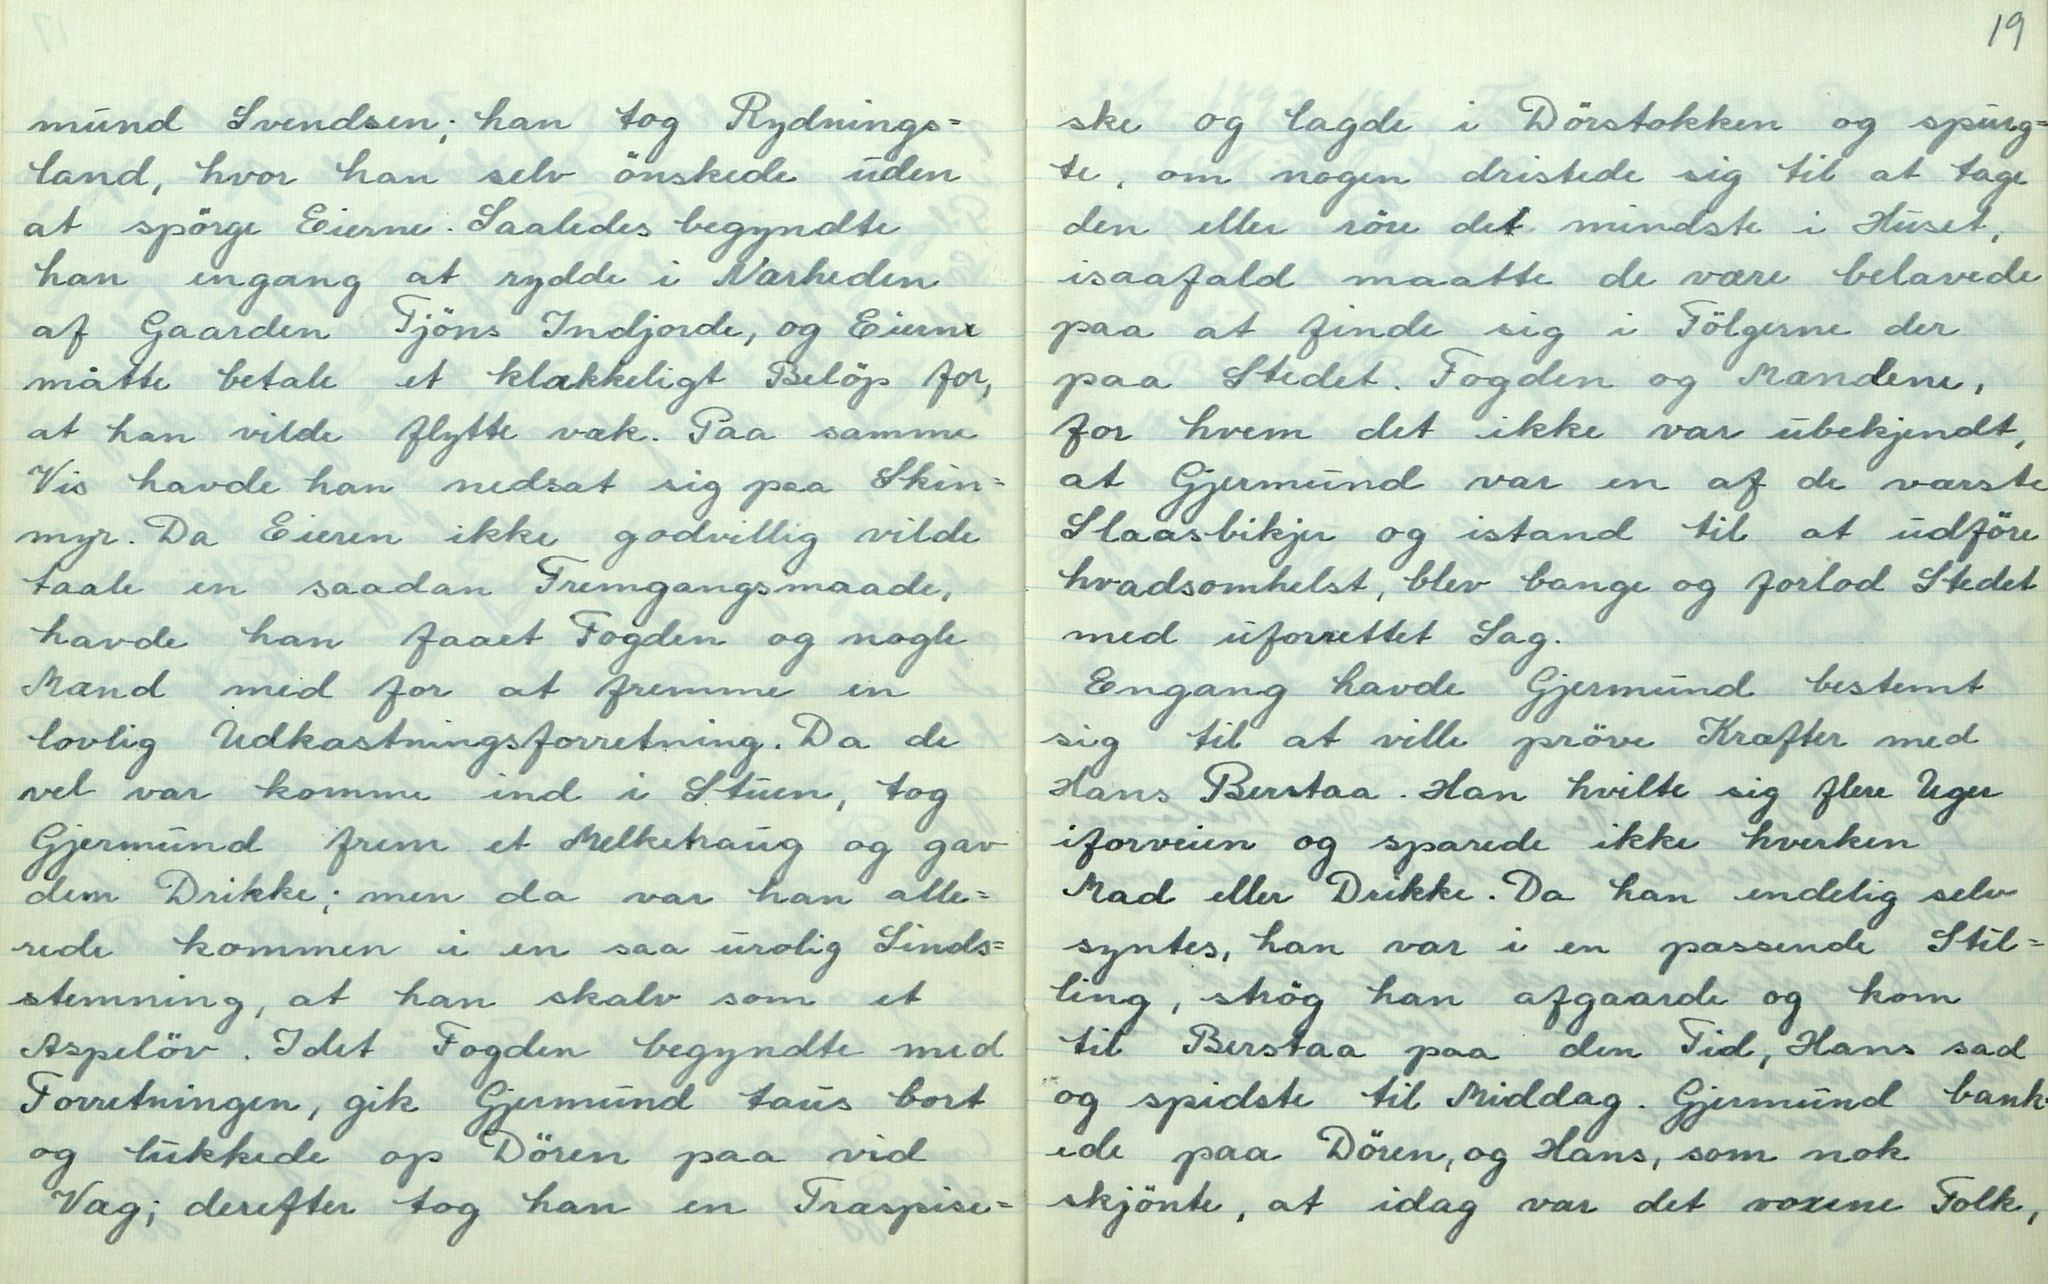 mund Svendsen; han tog Rydnings=
land, hvor han selv önskede uden
at spörge Eierne. Saaledes begyndte
han engang at rydde i Nærheden
af Gaarden Tjöns Indjorde, og Eierne
måtte betale et klækkeligt Belöp for,
at han vilde flytte væk. Paa samme
Vis havde han nedsat sig paa Skin=
myr. Da Eieren ikke godvillig vilde
taale en saadan Fremgangsmaade,
havde han faaet Fogden og nogle
Mænd med for at fremme en
lovlig Udkastningsforretning. Da de
vel var komne ind i Stuen, tog
Gjermund frem et Melketraug og gav
dem Drikke; men da var han alle=
rede kommen i en saa urolig Sinds=
stemning, at han skalv som et
Aspelöv. Idet Fogden begyndte med
Forretningen, gik Gjermund taus bort
og lukkede op Dören paa vid
Væg; derefter tog han en Træspise=
19
ske og lagde i Dörstokken og spurg=
te, om nogen dristede sig til at tage
den eller röre det mindste i Huset,
isaafald maatte de være belavede
paa at finde sig i Fölgerne der
paa Stedet. Fogden og Mændene,
for hvem det ikke var ubekjendt,
at Gjermund var en af de værste
Slaasbikjer og istand til at udföre
hvadsomhelst, blev bange og forlod Stedet
med uforrettet Sag.
Engang havde Gjermund bestemt
sig til at ville pröve Kræfter med
Hans Berstaa. Han hvilte sig flere Uger
iforveien og sparede ikke hverken
Mad eller Drikke. Da han endelig selv
syntes, han var i en passende Stil=
ling, strög han afgaarde og kom
til Berstaa paa den Tid, Hans sad
og spidste til Middag. Gjermund bank-
ede paa Dören, og Hans, som nok
skjönte, at idag var det voxene Folk,